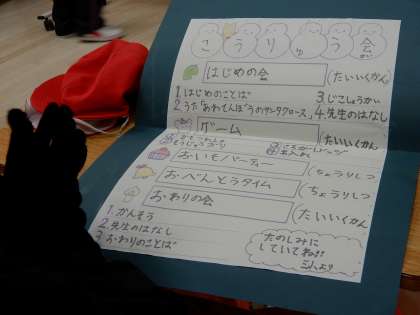 こうりゅう会
はじめの会 (たいいくかん)
1.はじめのことば 3.じこしょうかい
2.うた「あわてんぼうのサンタクロース」 4.先生のはなし
ゲーム (たいいくかん)
おいもパーティー (ちょうりしつ)
おべんとうタイム (ちょうりしつ)
おわりの会 (たいいくかん)
1.かんそう
2.先生のはなし
3.おわりのことば
たのしみに
していてね!!